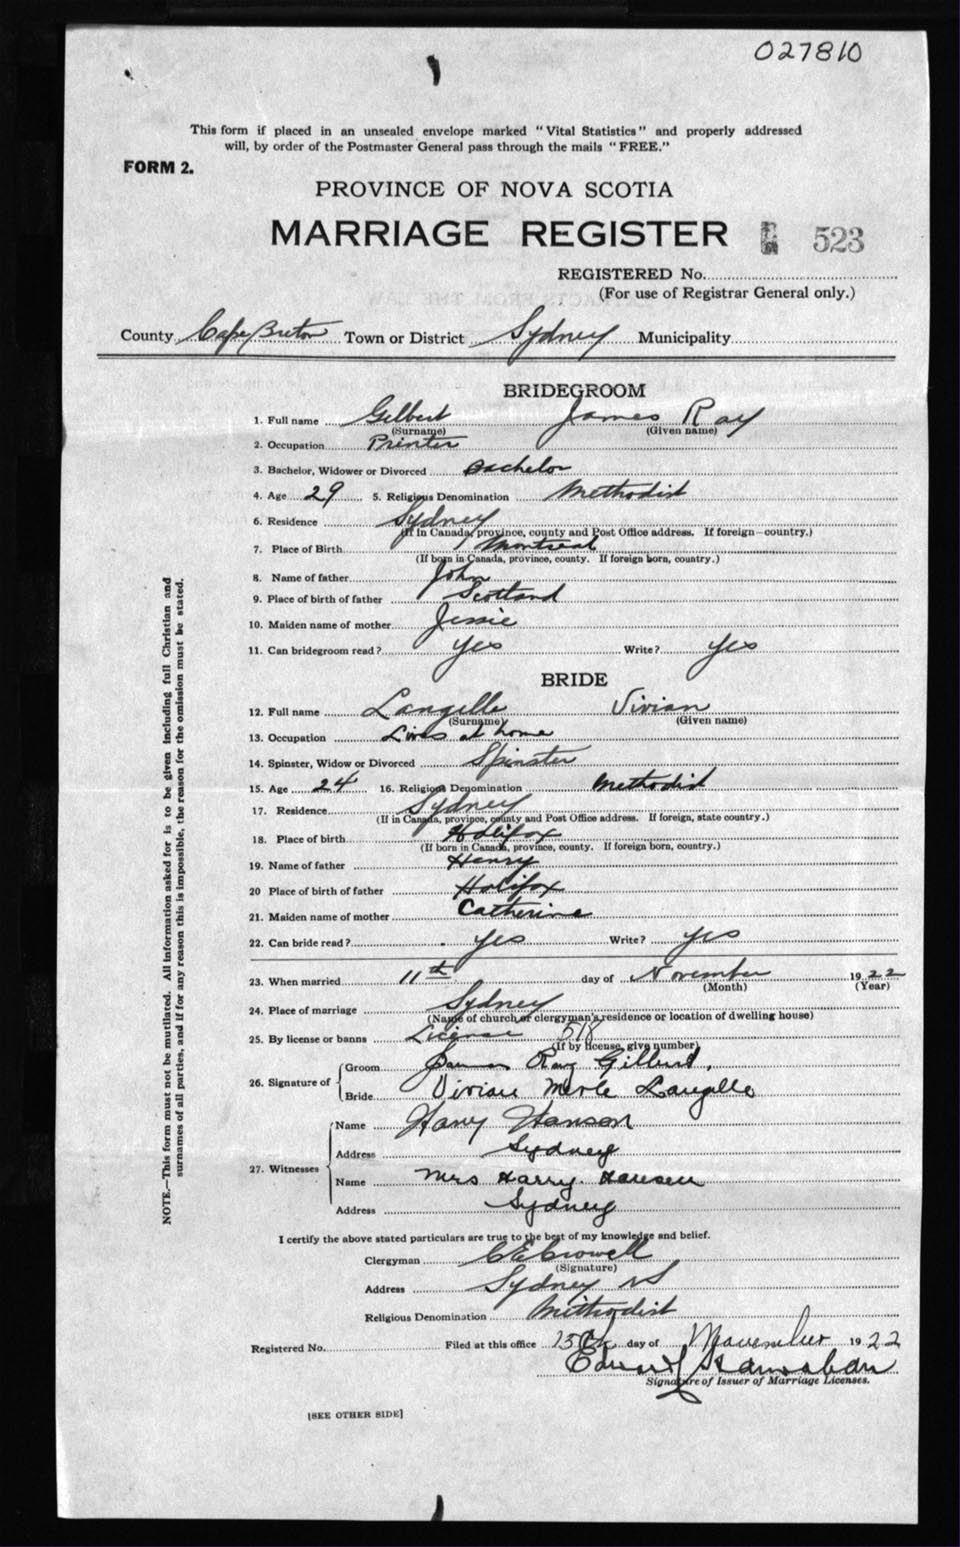 027810
This form if placed in an unsealed envelope marked "Vital Statistics" and properly addressed
will, by order of the Postmaster General pass through the mails "FREE."
FORM 2.
PROVINCE OF NOVA SCOTIA
MARRIAGE REGISTER 523
REGISTERED No.
(For use of Registrar General only.)
County Cape Breton Town or District Sydney Municipality
BRIDEGROOM
1. Full name Gilbert James Ray
(Surname) (Given name)
2. Occupation Printer
3. Bachelor, Widower or Divorced Bachelor
4. Age 29 5. Religious Denomination Methodist
6. Residence Sydney
(If in Canada, province, county and Post Office address. If foreign—country.)
7. Place of Birth Montreal
(If born in Canada, province, county. If foreign born, country.)
8. Name of father John
9. Place of birth of father Scotland
10. Maiden name of mother Jessie
11. Can bridegroom read? Yes Write? Yes
BRIDE
12. Full name Langille Vivian
(Surname) (Given name)
13. Occupation Lives at home
14. Spinster, Widow or Divorced Spinster
15. Age 24 16. Religious Denomination Methodist
17. Residence Sydney
(If in Canada, province, county and Post Office address. If foreign, state country.)
18. Place of birth Halifax
(If born in Canada, province, county. If foreign born, country.)
19. Name of father Henry
20 Place of birth of father Halifax
21. Maiden name of mother Catherine
22. Can bride read? Yes Write? Yes
23. When married 11th day of November 1922
(Month) (Year)
24. Place of marriage Sydney
(Name of church or clergyman's residence or location of dwelling house)
25. By license or banns License 518
(If by license, give number)
26. Signature of
Groom James Ray Gilbert.
Bride Vivian Merle Langille
27. Witnesses
Name Harry Hansen
Address Sydney
Name Mrs Harry Hansen
Address Sydney
I certify the above stated particulars are true to the best of my knowledge and belief.
Clergyman C E Crowell
(Signature)
Address Sydney NS
Religious Denomination Methodist
Registered No. Filed at this office 15th day of November 1922
Signature of Issuer of Marriage Licenses.
[SEE OTHER SIDE]
NOTE.—This form must not be mutilated. All information asked for is to be given including full Christian and
surnames of all parties, and if for any reason this is impossible, the reason for the omission must be stated.